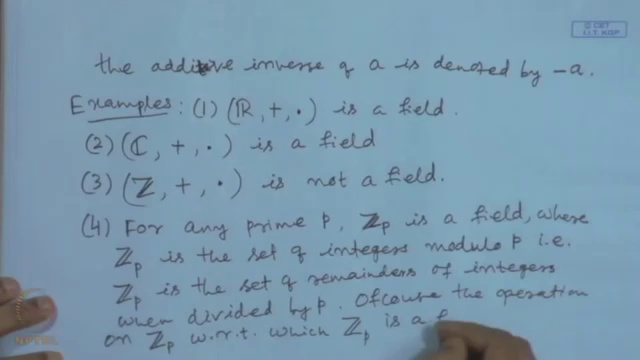 © CET
I.I.T. KGP
the additive inverse of a is denoted by -a.
Examples: (1) (ℝ, +, ·) is a field.
(2) (ℂ, +, ·) is a field
(3) (ℤ, +, ·) is not a field.
(4) For any prime p, ℤp is a field, where
ℤp is the set of integers modulo p i.e.
ℤp is the set of remainders of integers
when divided by p. Ofcourse the operation
on ℤp w.r.t. which ℤp is a f
NPTEL